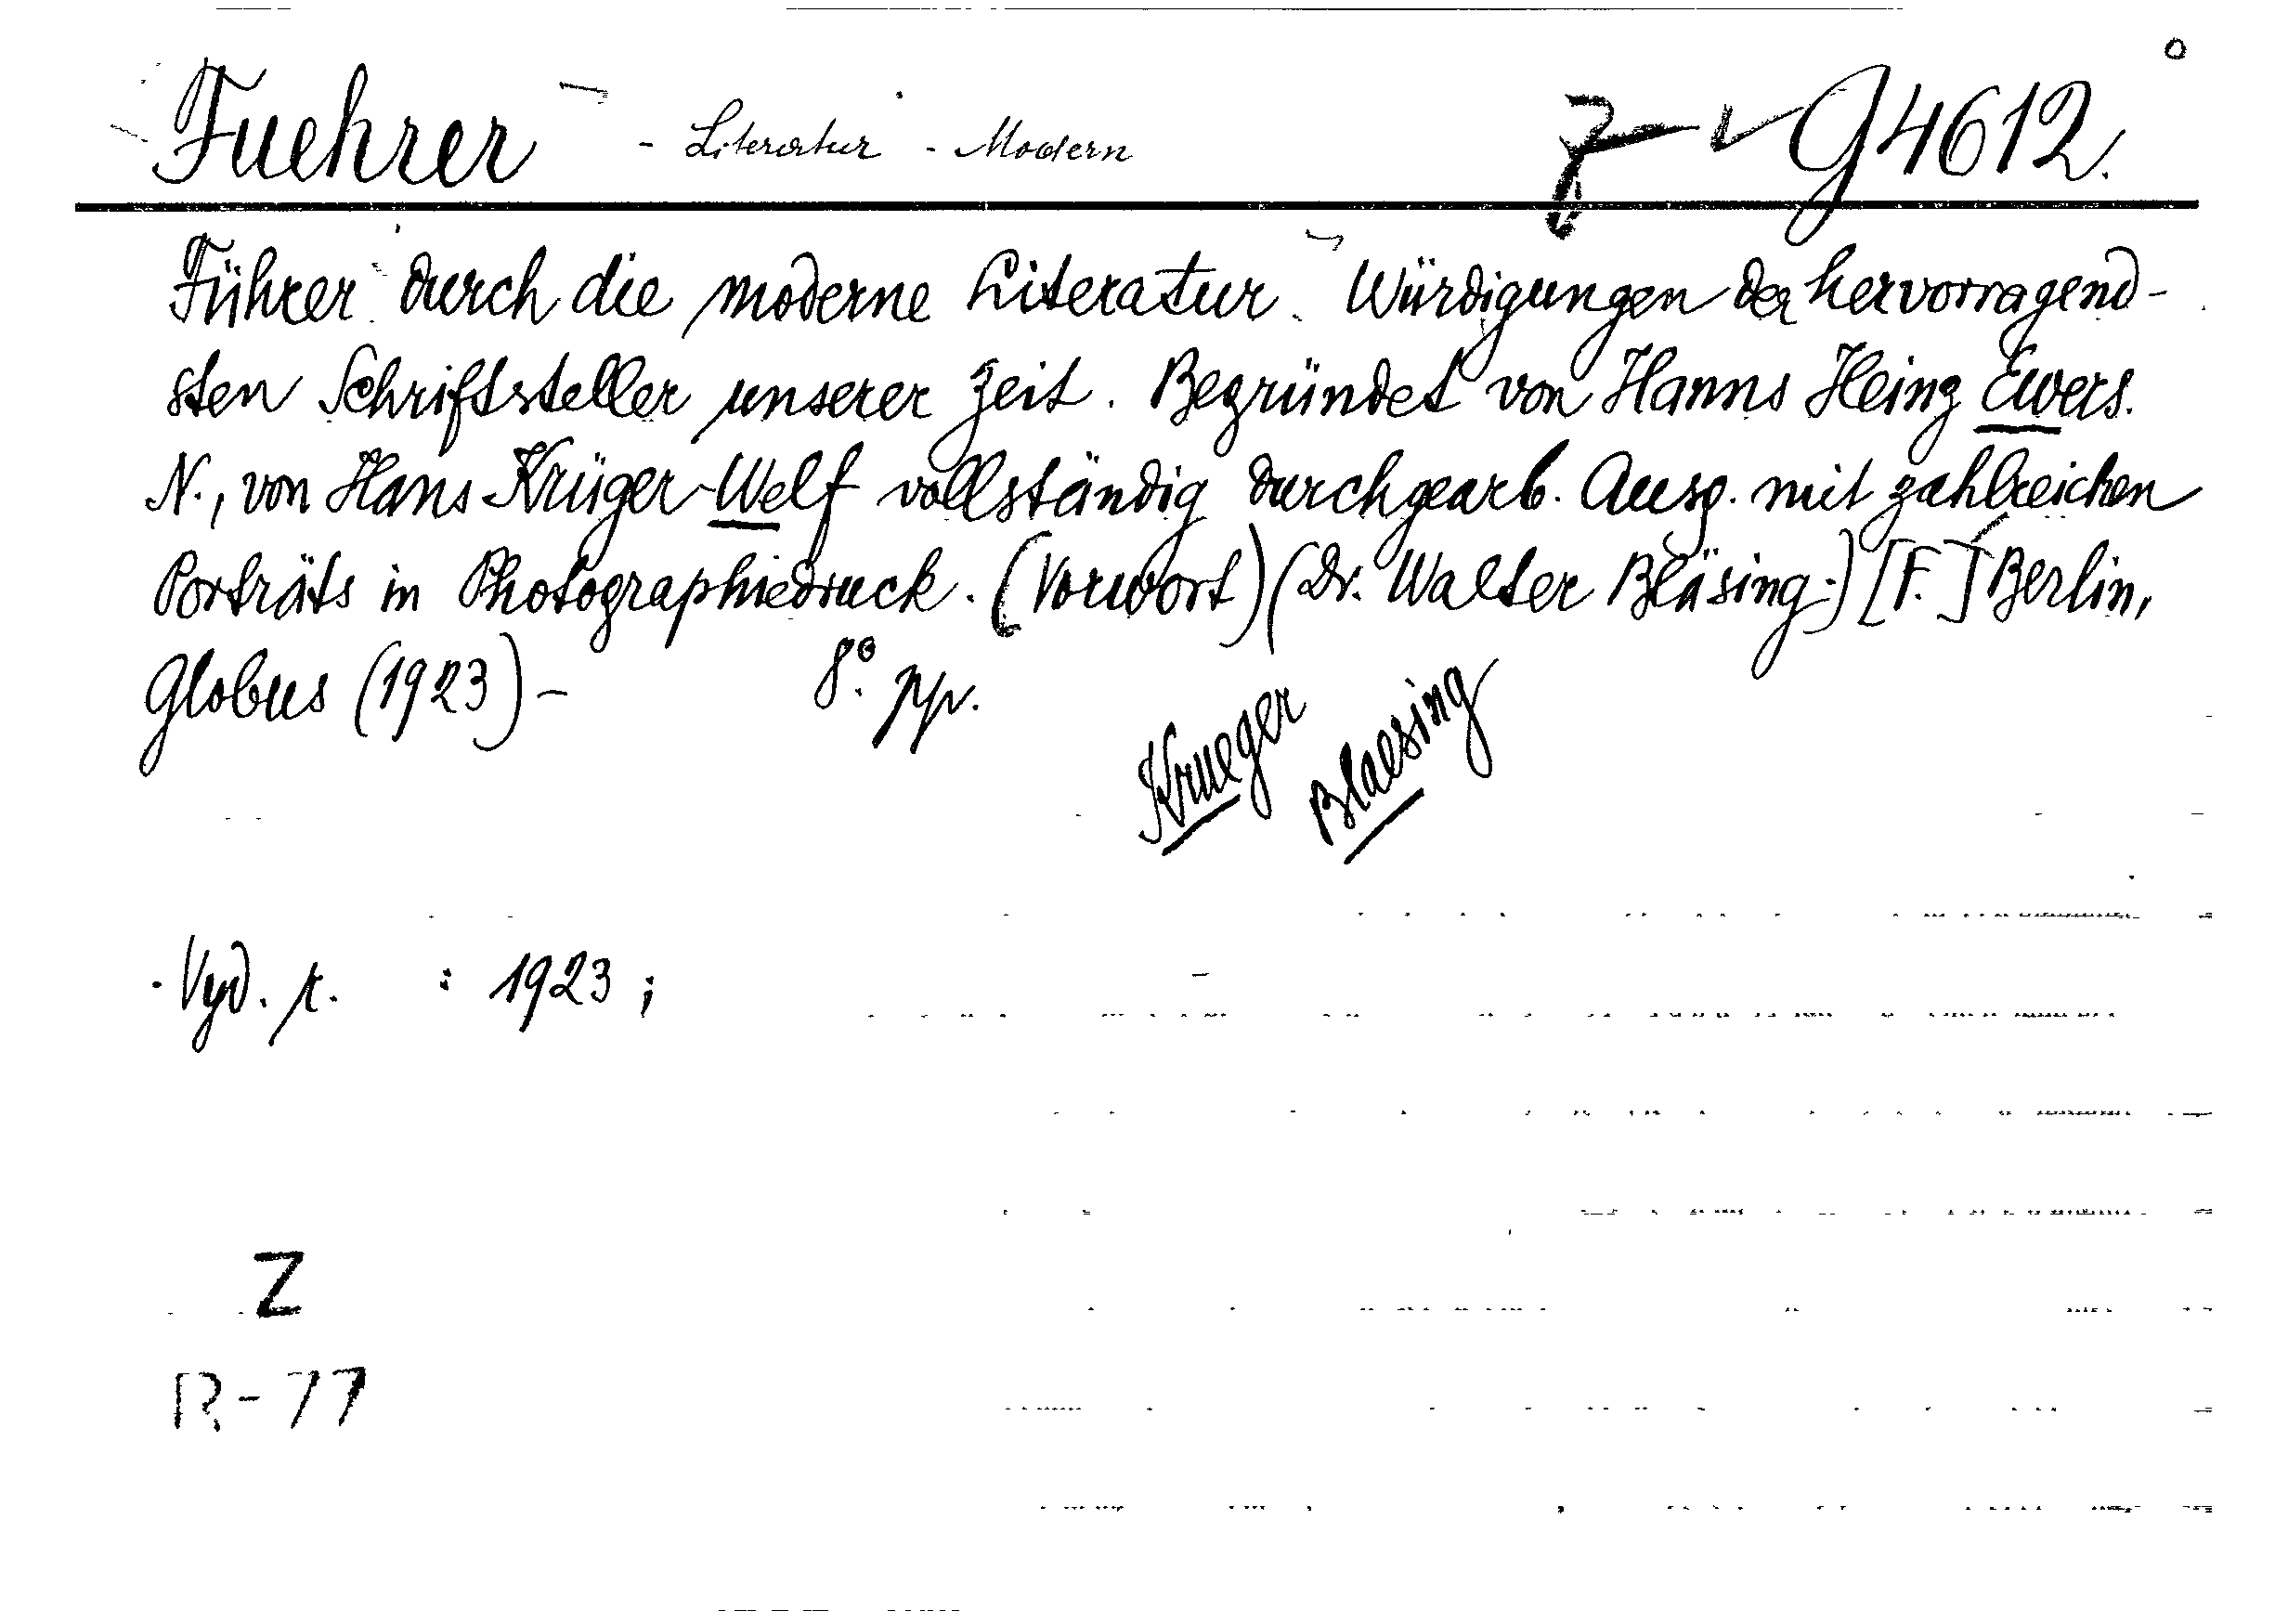 Fuehrer - Literatur - Modern G 4612.
Führer durch die moderne Literatur. Würdigungen der hervorragend-
sten Schriftsteller unserer Zeit. Begründet von Hanns Heinz Ewers.
N., von Hans Krüger-Welf vollständig durchgearb. Ausg. mit zahlreichen
Porträts in Photographiedruck. (Vorwort) (Dr. Walter Bläsing.) [F.] Berlin,
Globus (1923) – 8° pp.
Krueger
Blaesing
Vyd. r. : 1923 ;
Z
R-77